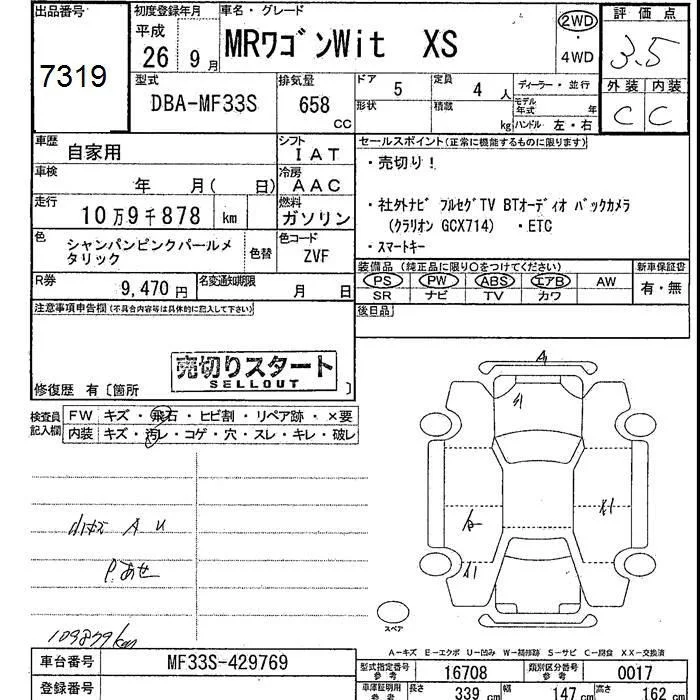 出品番号 初度登録年月 車名・グレード 評価点
7319 平成 26 9月 MRワゴンWit XS 2WD 3.5
・ 4WD 外装 内装
型式 排気量 ドア 定員 ディーラー・並行 C C
DBA-MF33S 658 cc 5 4人
形状 積載 kg モデル年式 年
ハンドル 左・右
車歴 自家用 シフト IAT セールスポイント(正常に機能するものに限ります)
車検 年 月( 日) 冷房 AAC ・売切り!
走行 10万9千878 km 燃料 ガソリン ・社外ナビ フルセグTV BTオーディオ バックカメラ
(クラリオン GCX714) ・ETC
色 シャンパンピンクパールメタリック 色替 色コード ZVF ・スマートキー
R券 9,470円 名変通知期限 月 日 装備品(純正品に限り○をつけてください) 新車保証書
PS PW ABS エアB AW 有・無
SR ナビ TV カワ
注意事項申告欄(不具合内容等は具体的に記入して下さい) 後日品
売切りスタート
SELLOUT
修復歴 有〔箇所 〕
検査員記入欄 FW キズ・飛石・ヒビ割・リペア跡・×要
内装 キズ・汚レ・コゲ・穴・スレ・キレ・破レ
A
A
A1
X1
A U
P.あせ
109879km
スペア
A-キズ E-エクボ U-凹み W-補修跡 S-サビ C-腐食 XX-交換済
車台番号 MF33S-429769 型式指定番号 参考 16708 類別区分番号 参考 0017
登録番号 車庫証明用 参考 長さ 339 cm 幅 147 cm 高さ 162 cm